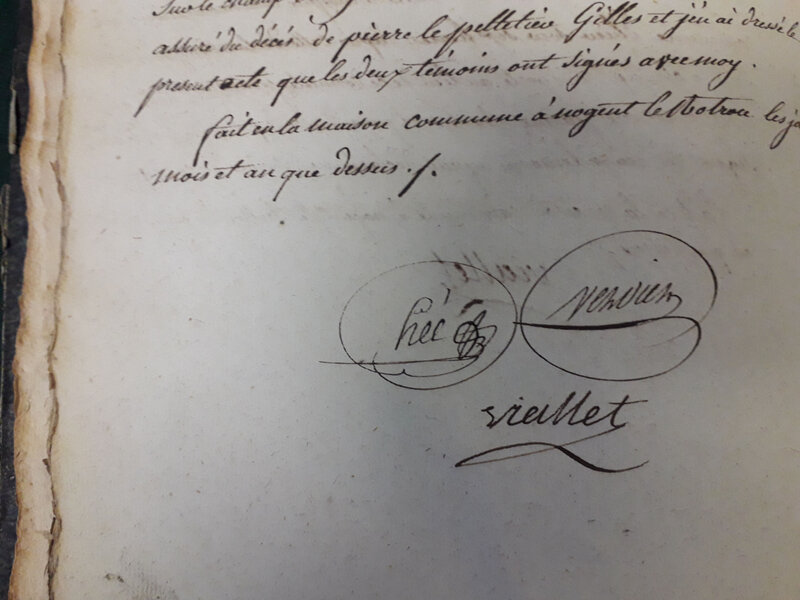 Sur le champ
assuré du décés de pierre le pelletier Gilles et j'en ai dressé le
present acte que les deux témoins ont signés avec moy.
fait en la maison commune á nogent le Rotrou les jo
mois et an que dessus ./.
hée verdier
viallet